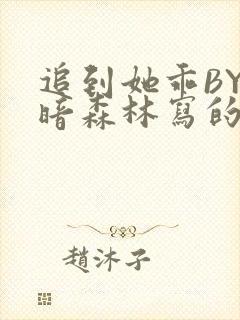 追到她乖BY
暗森林寫的
趙沐子